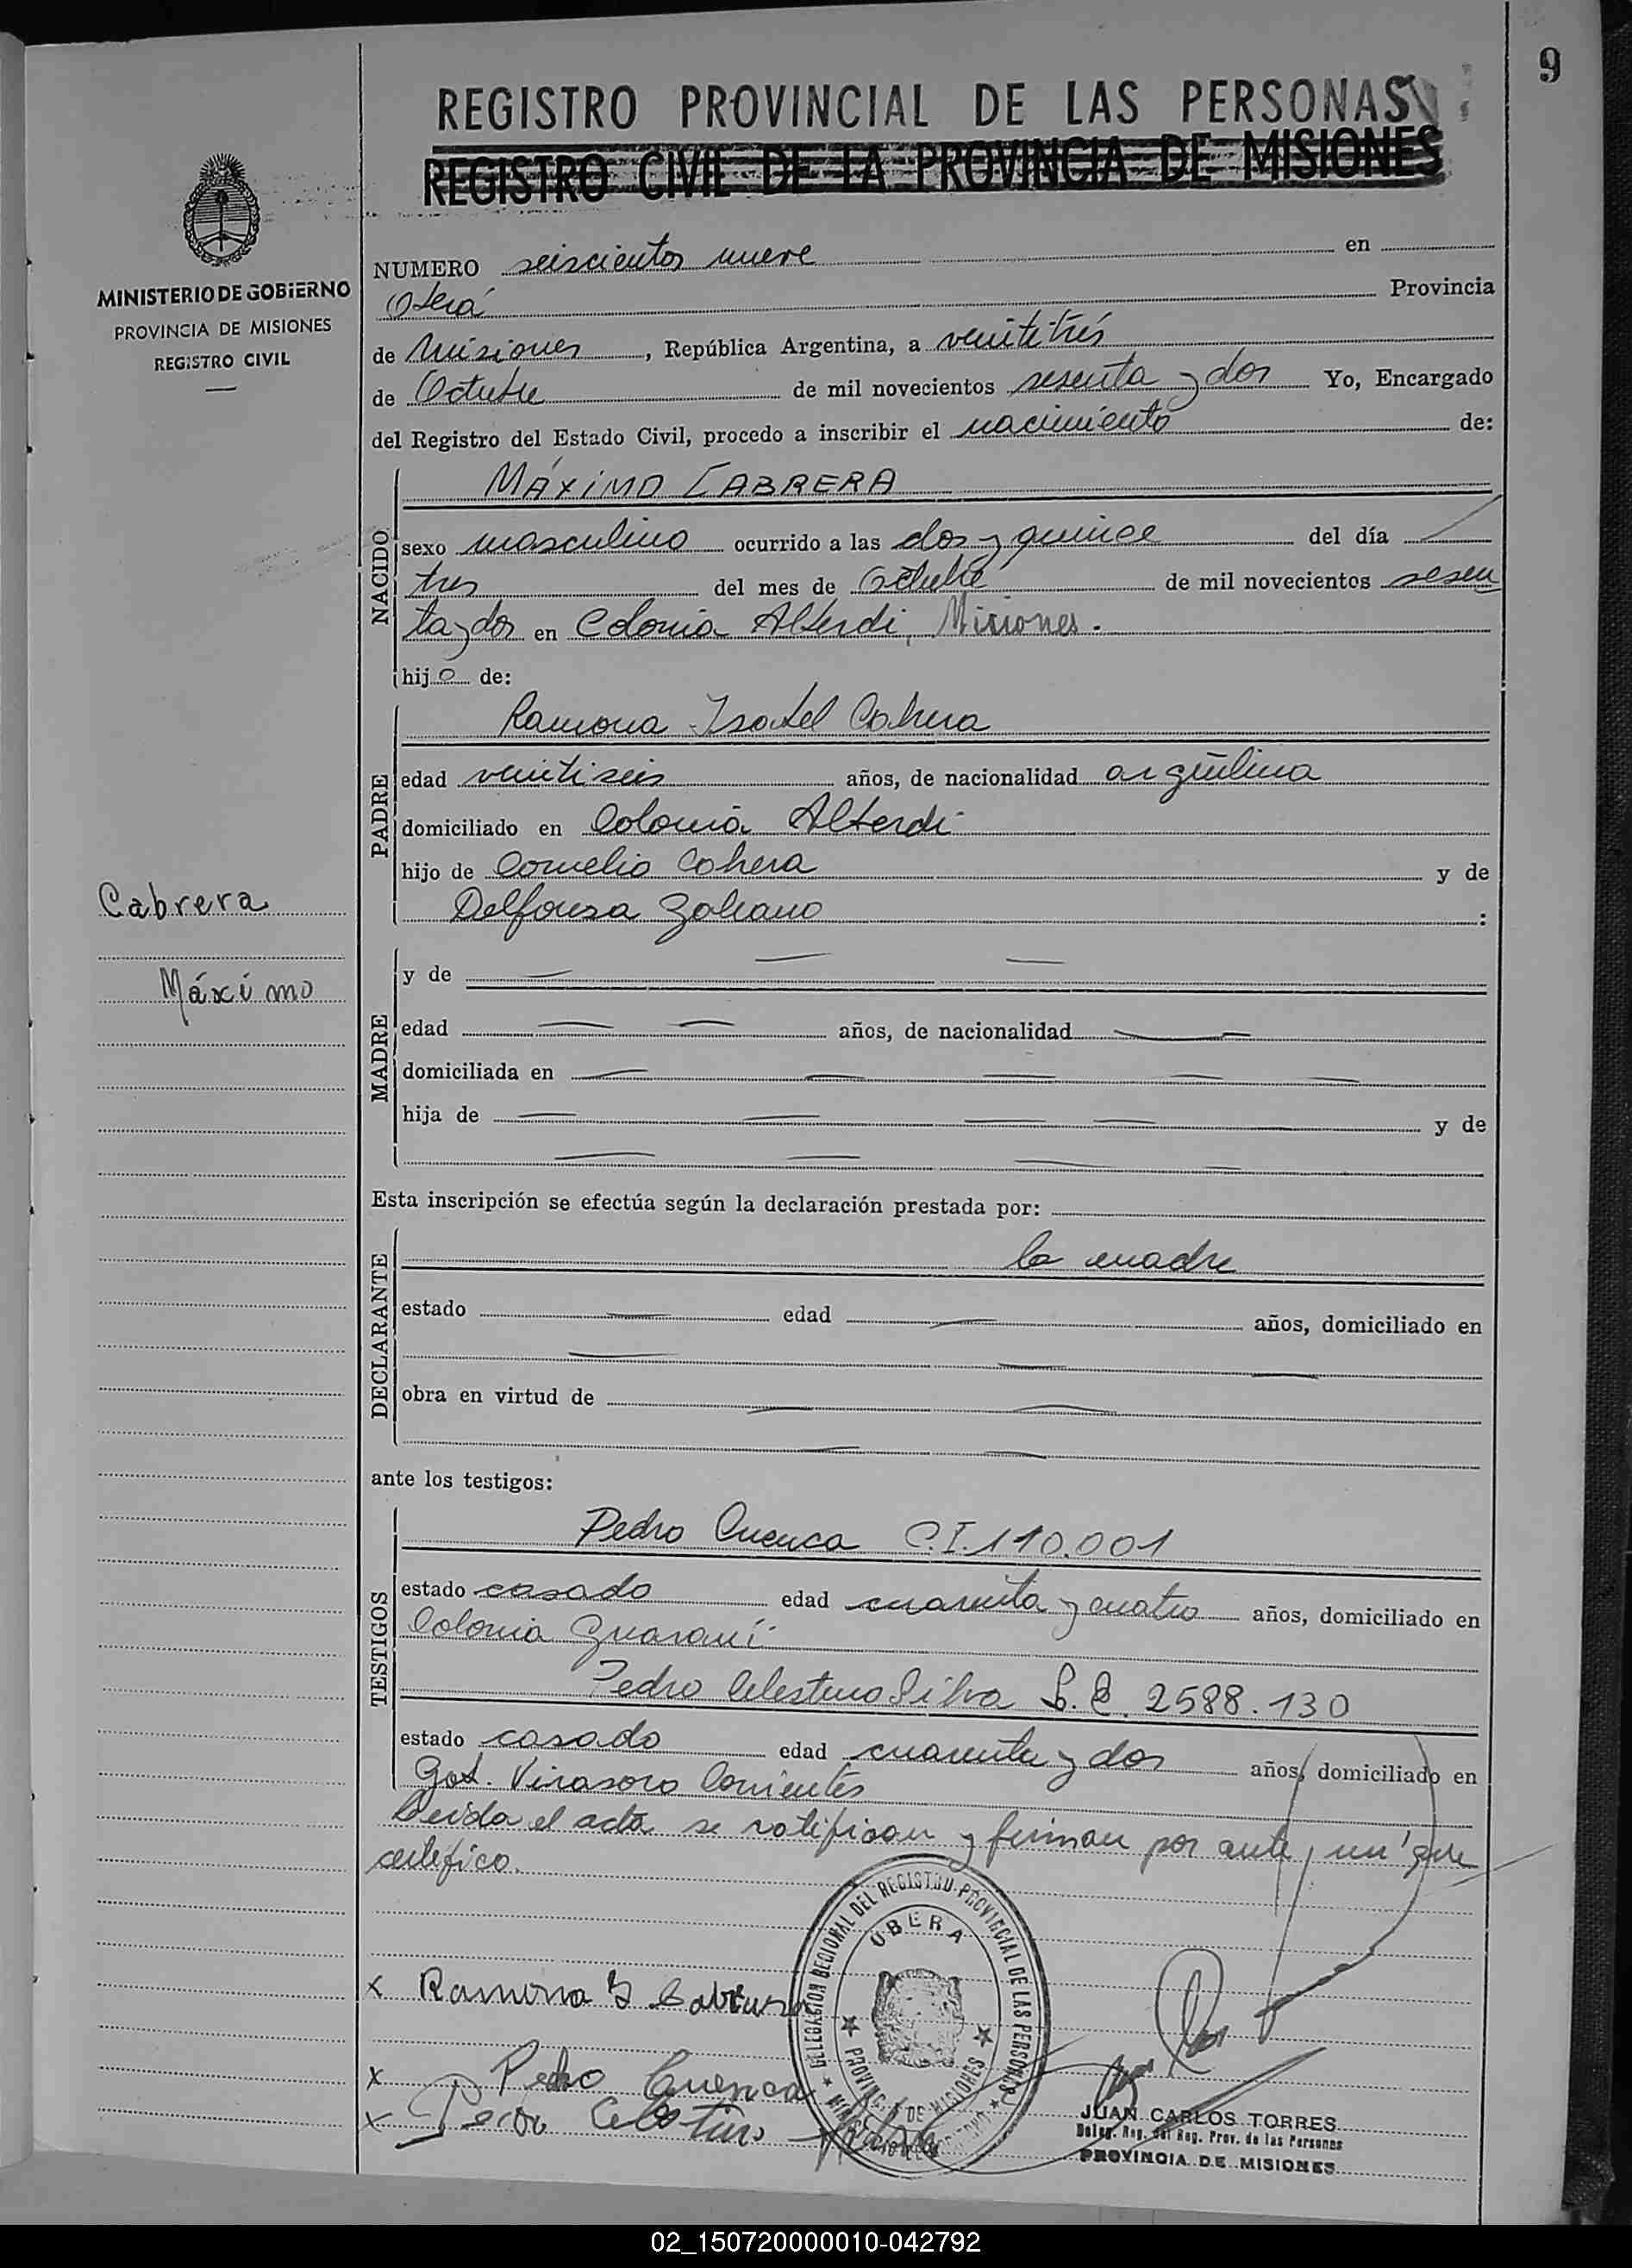 9
REGISTRO PROVINCIAL DE LAS PERSONAS
REGISTRO CIVIL DE LA PROVINCIA DE MISIONES
MINISTERIO DE GOBIERNO
PROVINCIA DE MISIONES
REGISTRO CIVIL
NUMERO seiscientos nueve en
Oberá Provincia
de Misiones, República Argentina, a veintitrés
de Octubre de mil novecientos sesenta y dos Yo, Encargado
del Registro del Estado Civil, procedo a inscribir el nacimiento de:
NACIDO
MÁXIMO CABRERA
sexo masculino ocurrido a las dos y quince del día
tres del mes de Octubre de mil novecientos sesen
ta y dos en Colonia Alberdi, Misiones.
hijo de:
PADRE
Ramona Isabel Cabrera
edad veintiseis años, de nacionalidad argentina
domiciliado en Colonia Alberdi
hijo de Cornelio Cabrera y de
Delfonsa :
Cabrera
Máximo
MADRE
y de
edad años, de nacionalidad
domiciliada en
hija de y de
Esta inscripción se efectúa según la declaración prestada por:
DECLARANTE
la madre
estado edad años, domiciliado en
obra en virtud de
ante los testigos:
TESTIGOS
Pedro Cuenca C.I. 110.001
estado casado edad cuarenta y cuatro años, domiciliado en
Colonia Guaraní
Pedro Celestino Silva L.E. 2588.130
estado casado edad cuarenta y dos años, domiciliado en
Gob. Virasoro Corrientes
Leida el acta se ratifican y firman por ante mí que
certifico.
DELEGACION REGIONAL DEL REGISTRO PROVINCIAL DE LAS PERSONAS
OBERA
PROVINCIA DE MISIONES
x Ramona I Cabrera
x Pedro Cuenca
x Pedro Celestino Silva
JUAN CARLOS TORRES
Deleg. Reg. del Reg. Prov. de las Personas
PROVINCIA DE MISIONES
02_150720000010-042792